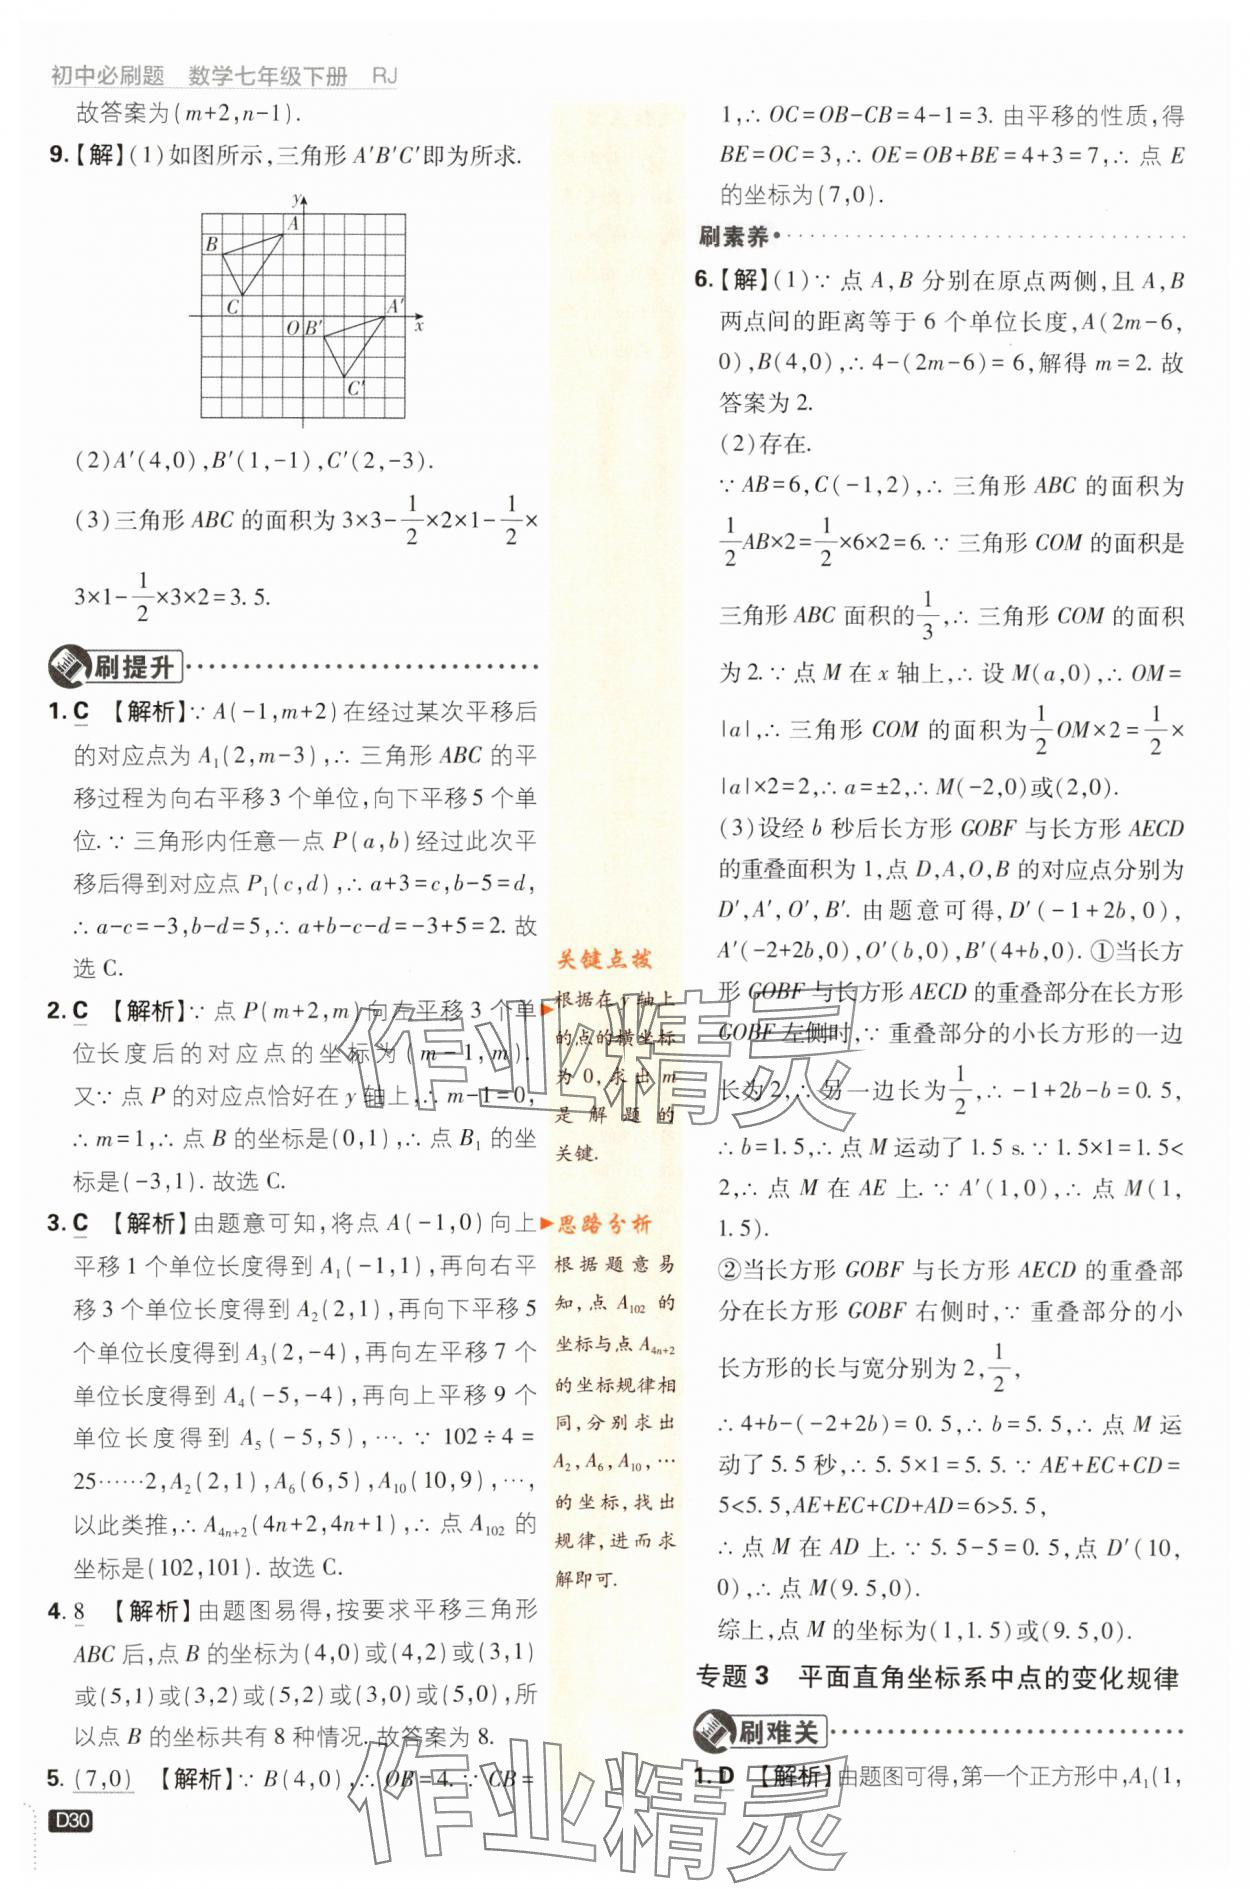 初中必刷题 数学七年级下册 RJ
故答案为(m+2,n-1).
9.【解】(1)如图所示,三角形A′B′C′即为所求.
y
A
B
C
A′
O B′
x
C′
(2)A′(4,0),B′(1,-1),C′(2,-3).
(3)三角形ABC的面积为3×3-1/2×2×1-1/2×
3×1-1/2×3×2=3.5.
刷提升
1.C 【解析】∵A(-1,m+2)在经过某次平移后
的对应点为A₁(2,m-3),∴三角形ABC的平
移过程为向右平移3个单位,向下平移5个单
位.∵三角形内任意一点P(a,b)经过此次平
移后得到对应点P₁(c,d),∴a+3=c,b-5=d,
∴a-c=-3,b-d=5,∴a+b-c-d=-3+5=2.故
选C.
2.C 【解析】∵点P(m+2,m)向左平移3个单
位长度后的对应点的坐标为(m-1,m).
又∵点P的对应点恰好在y轴上,∴m-1=0,
∴m=1,∴点B的坐标是(0,1),∴点B₁的坐
标是(-3,1).故选C.
3.C 【解析】由题意可知,将点A(-1,0)向上
平移1个单位长度得到A₁(-1,1),再向右平
移3个单位长度得到A₂(2,1),再向下平移5
个单位长度得到A₃(2,-4),再向左平移7个
单位长度得到A₄(-5,-4),再向上平移9个
单位长度得到A₅(-5,5),….∵102÷4=
25……2,A₂(2,1),A₆(6,5),A₁₀(10,9),…,
以此类推,∴A₄ₙ₊₂(4n+2,4n+1),∴点A₁₀₂的
坐标是(102,101).故选C.
4.8 【解析】由题图易得,按要求平移三角形
ABC后,点B的坐标为(4,0)或(4,2)或(3,1)
或(5,1)或(3,2)或(5,2)或(3,0)或(5,0),所
以点B的坐标共有8种情况.故答案为8.
5.(7,0) 【解析】∵B(4,0),∴OB=4.∵CB=
D30
关键点拨
根据在y轴上
的点的横坐标
为0,求出m
是解题的
关键.
思路分析
根据题意易
知,点A₁₀₂的
坐标与点A₄ₙ₊₂
的坐标规律相
同,分别求出
A₂,A₆,A₁₀,…
的坐标,找出
规律,进而求
解即可.
1,∴OC=OB-CB=4-1=3.由平移的性质,得
BE=OC=3,∴OE=OB+BE=4+3=7,∴点E
的坐标为(7,0).
刷素养
6.【解】(1)∵点A,B分别在原点两侧,且A,B
两点间的距离等于6个单位长度,A(2m-6,
0),B(4,0),∴4-(2m-6)=6,解得m=2.故
答案为2.
(2)存在.
∵AB=6,C(-1,2),∴三角形ABC的面积为
1/2AB×2=1/2×6×2=6.∵三角形COM的面积是
三角形ABC面积的1/3,∴三角形COM的面积
为2.∵点M在x轴上,∴设M(a,0),∴OM=
|a|,∴三角形COM的面积为1/2OM×2=1/2×
|a|×2=2,∴a=±2,∴M(-2,0)或(2,0).
(3)设经b秒后长方形GOBF与长方形AECD
的重叠面积为1,点D,A,O,B的对应点分别为
D′,A′,O′,B′.由题意可得,D′(-1+2b,0),
A′(-2+2b,0),O′(b,0),B′(4+b,0).①当长方
形GOBF与长方形AECD的重叠部分在长方形
GOBF左侧时,∵重叠部分的小长方形的一边
长为2,∴另一边长为1/2,∴-1+2b-b=0.5,
∴b=1.5,∴点M运动了1.5 s.∵1.5×1=1.5<
2,∴点M在AE上.∵A′(1,0),∴点M(1,
1.5).
②当长方形GOBF与长方形AECD的重叠部
分在长方形GOBF右侧时,∵重叠部分的小
长方形的长与宽分别为2,1/2,
∴4+b-(-2+2b)=0.5,∴b=5.5,∴点M运
动了5.5秒,∴5.5×1=5.5.∵AE+EC+CD=
5<5.5,AE+EC+CD+AD=6>5.5,
∴点M在AD上.∵5.5-5=0.5,点D′(10,
0),∴点M(9.5,0).
综上,点M的坐标为(1,1.5)或(9.5,0).
专题3 平面直角坐标系中点的变化规律
刷难关
1.D 【解析】由题图可得,第一个正方形中,A₁(1,
作业精灵
作业精灵